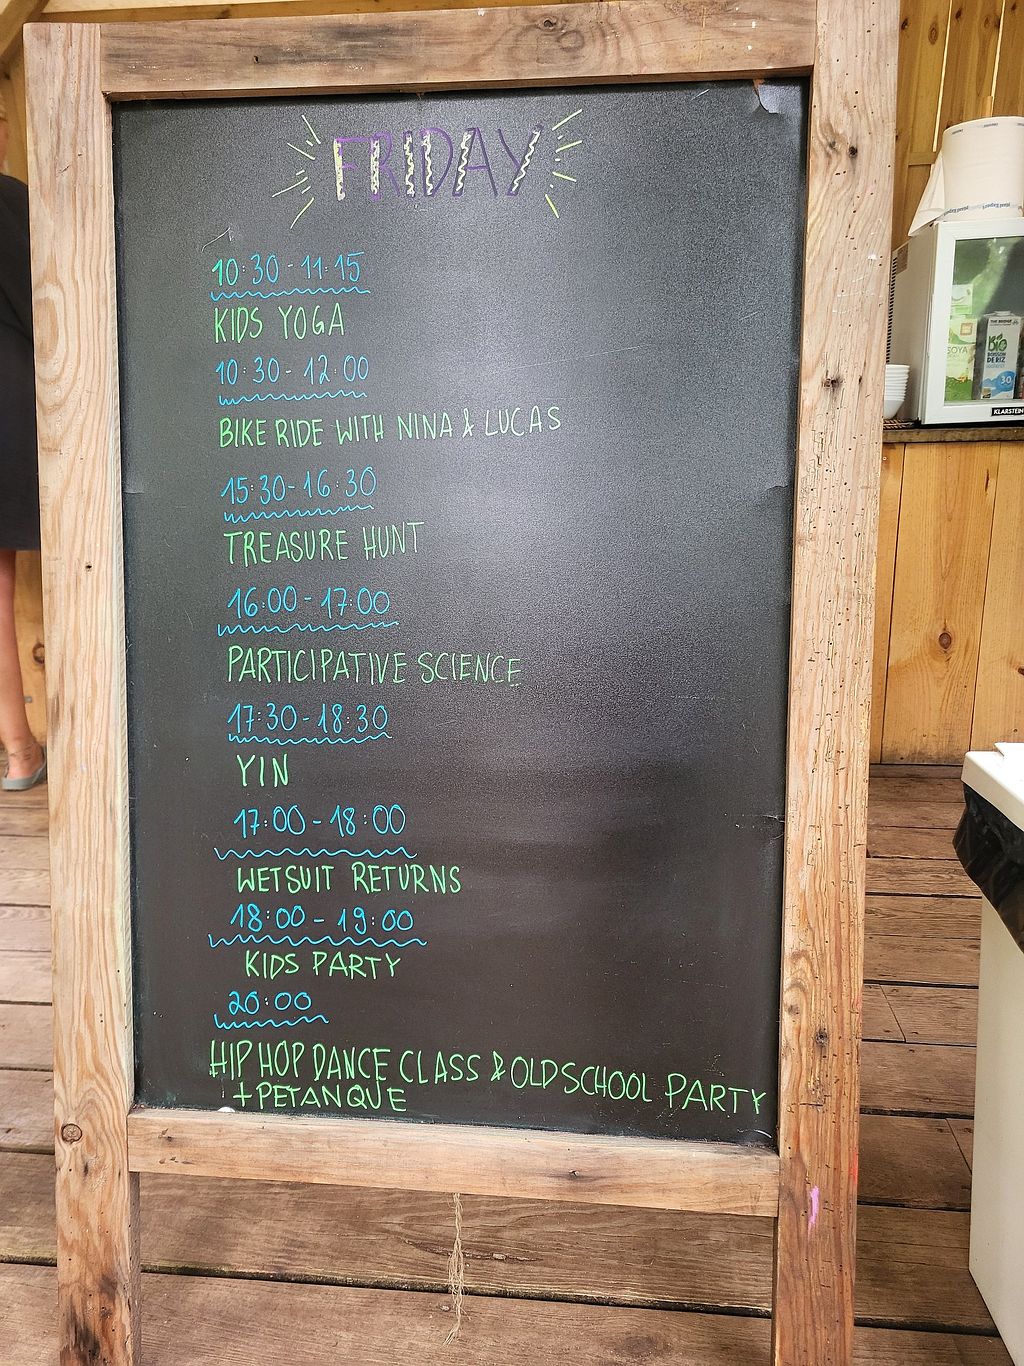 FRIDAY
10:30-11:15
KIDS YOGA
10:30-12:00
BIKE RIDE WITH NINA & LUCAS
15:30-16:30
TREASURE HUNT
16:00-17:00
PARTICIPATIVE SCIENCE
17:30-18:30
YIN
17:00-18:00
WETSUIT RETURNS
18:00-19:00
KIDS PARTY
20:00
HIP HOP DANCE CLASS & OLD SCHOOL PARTY
+PETANQUE
SOYA
THE BRIDGE
BIO
BOISSON
DE RIZ
30
KLARSTEIN